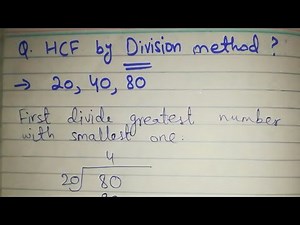 Q. HCF by Division method ?
→ 20, 40, 80
First divide greatest number
with smallest one.
4
20 80